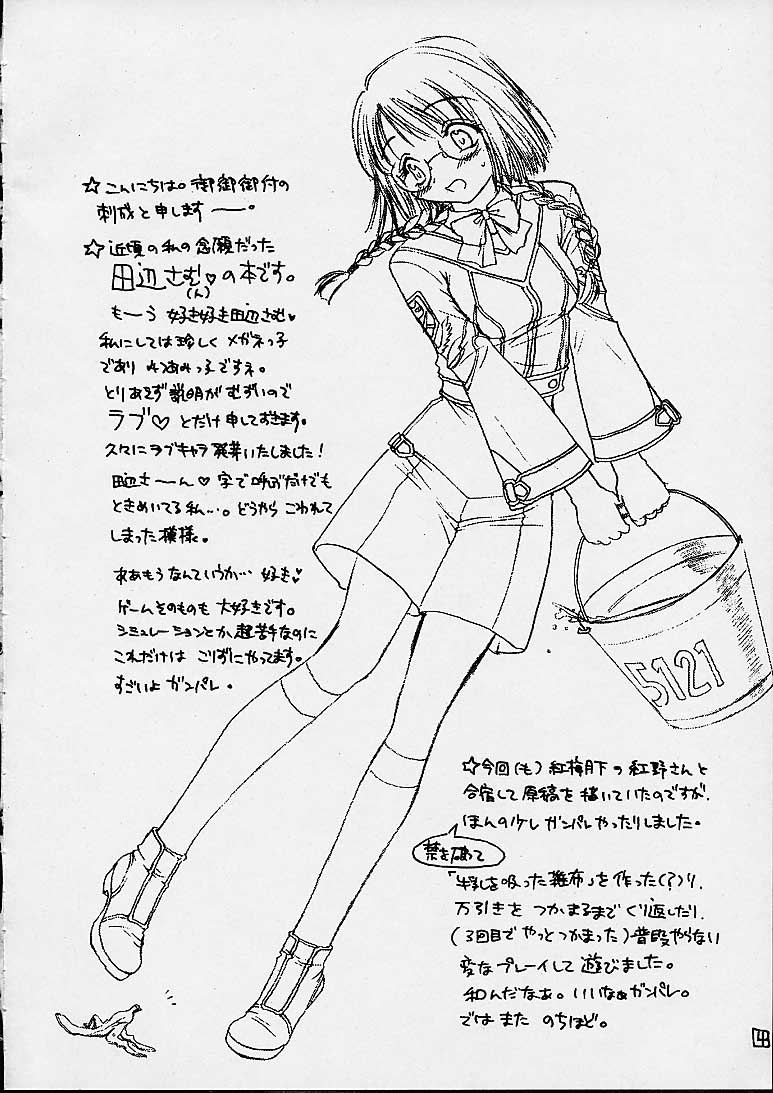 ☆こんにちは。御御御付の
刺成と申します――。
☆近頃の私の念願だった
田辺さむ♡の本です。
(ん)
もーう 好き好き田辺さむ♥
私にしては珍しくメガネっ子
であり みつあみっ子ですネ。
とりあえず説明がむずいので
ラブ♡ とだけ申しておきます。
久々にラブキャラ発芽いたしました!
田辺さーん♡字で呼ぶだけでも
ときめいてる私…。どうやら こわれて
しまった模様。
ああもうなんていうか… 好き♥
ゲームそのものも 大好きです。
シミュレーションとか超苦手なのに
これだけは こりずにやってます。
すごいよ ガンパレ。
5121
☆今回(も)紅梅月下の紅野さんと
合宿して原稿を描いていたのですが、
ほんの少し ガンパレやったりしました。
禁を破って
「牛乳を吸った雑布」を作った(?)り、
万引きを つかまるまで くり返したり、
(3回目で やっとつかまった)普段やらない
変なプレイして 遊びました。
和んだなぁ。いいなぁガンパレ。
では また のちほど。
4